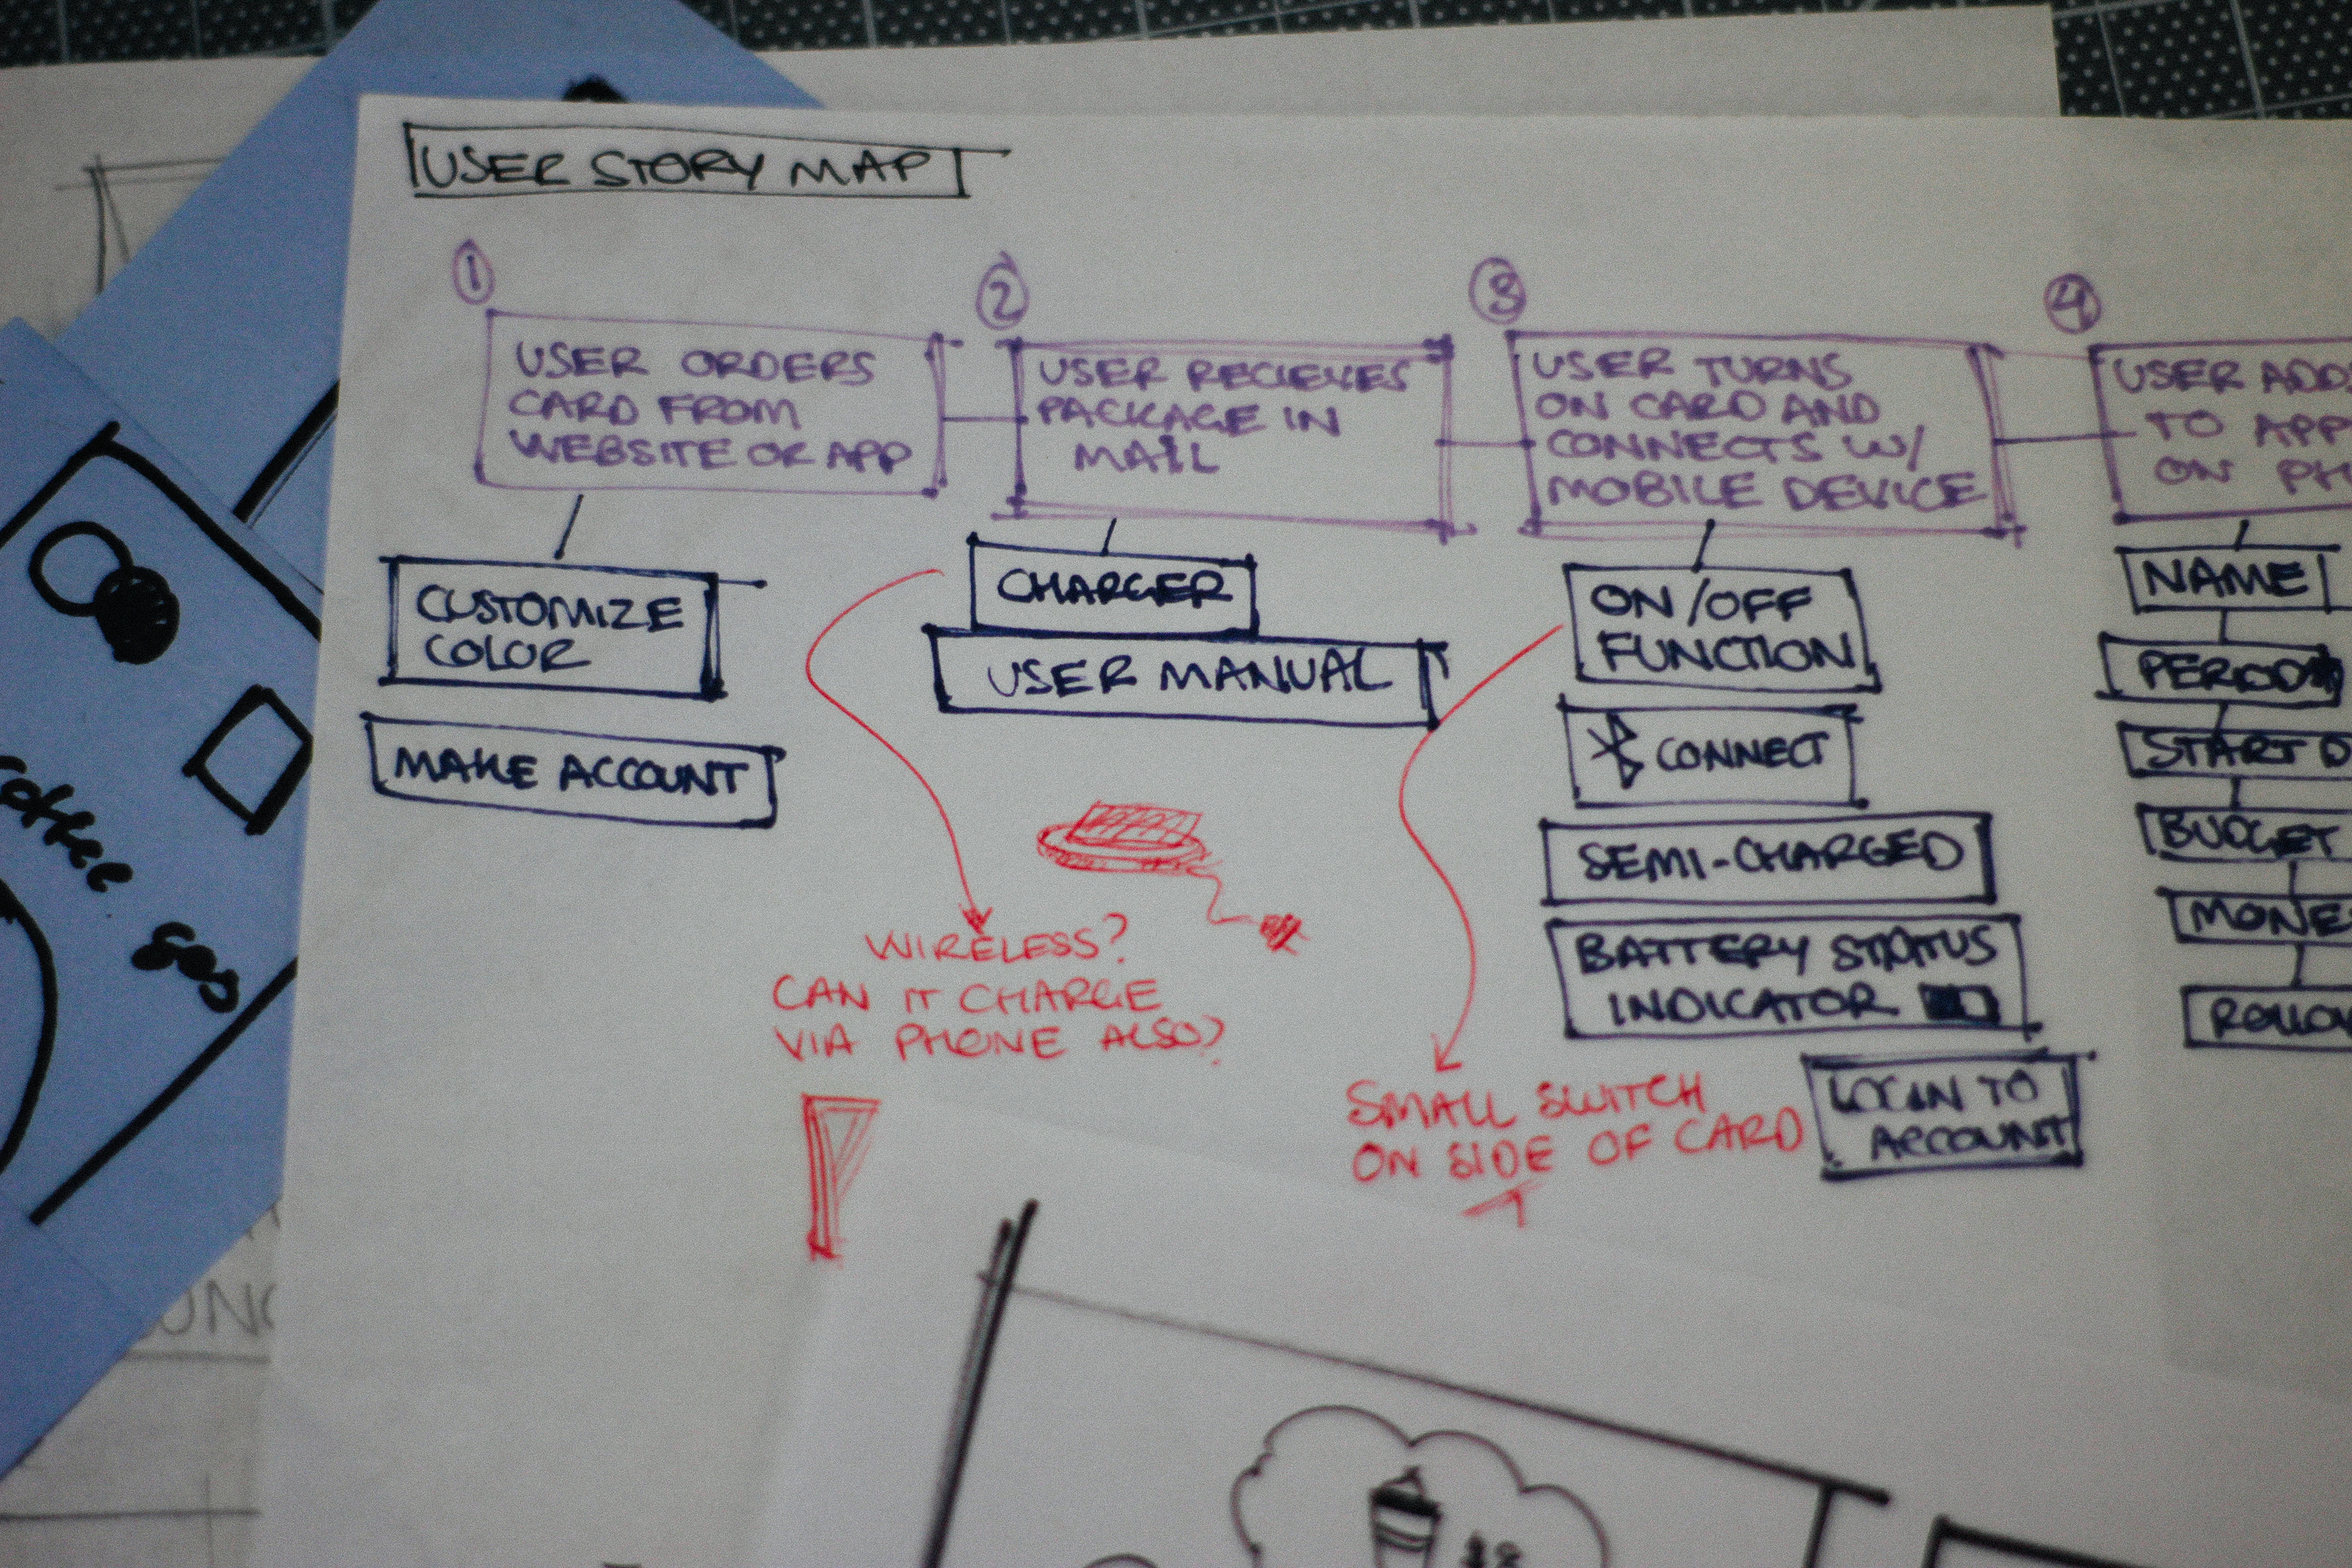 USER STORY MAP
1
USER ORDERS
CARD FROM
WEBSITE OR APP
CUSTOMIZE
COLOR
MAKE ACCOUNT
2
USER RECIEVES
PACKAGE IN
MAIL
CHARGER
USER MANUAL
WIRELESS?
CAN IT CHARGE
VIA PHONE ALSO?
3
USER TURNS
ON CARD AND
CONNECTS W/
MOBILE DEVICE
ON/OFF
FUNCTION
CONNECT
SEMI-CHARGED
BATTERY STATUS
INDICATOR
LOGIN TO
ACCOUNT
SMALL SWITCH
ON SIDE OF CARD
4
USER ADDS
TO APP
ON PH
NAME
PERIOD
START D
BUDGET
MONE
gas